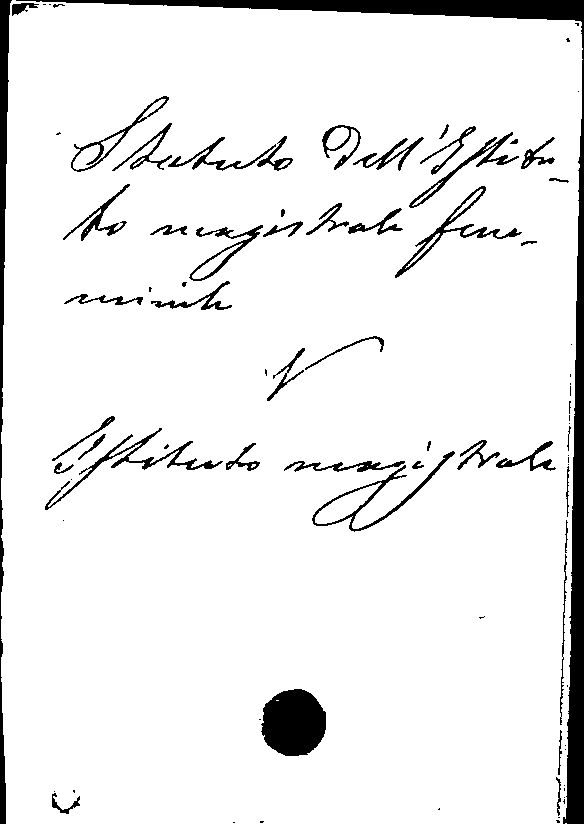 Statuto dell'Istitu-
to magistrale fem-
minile
V
Istituto magistrale